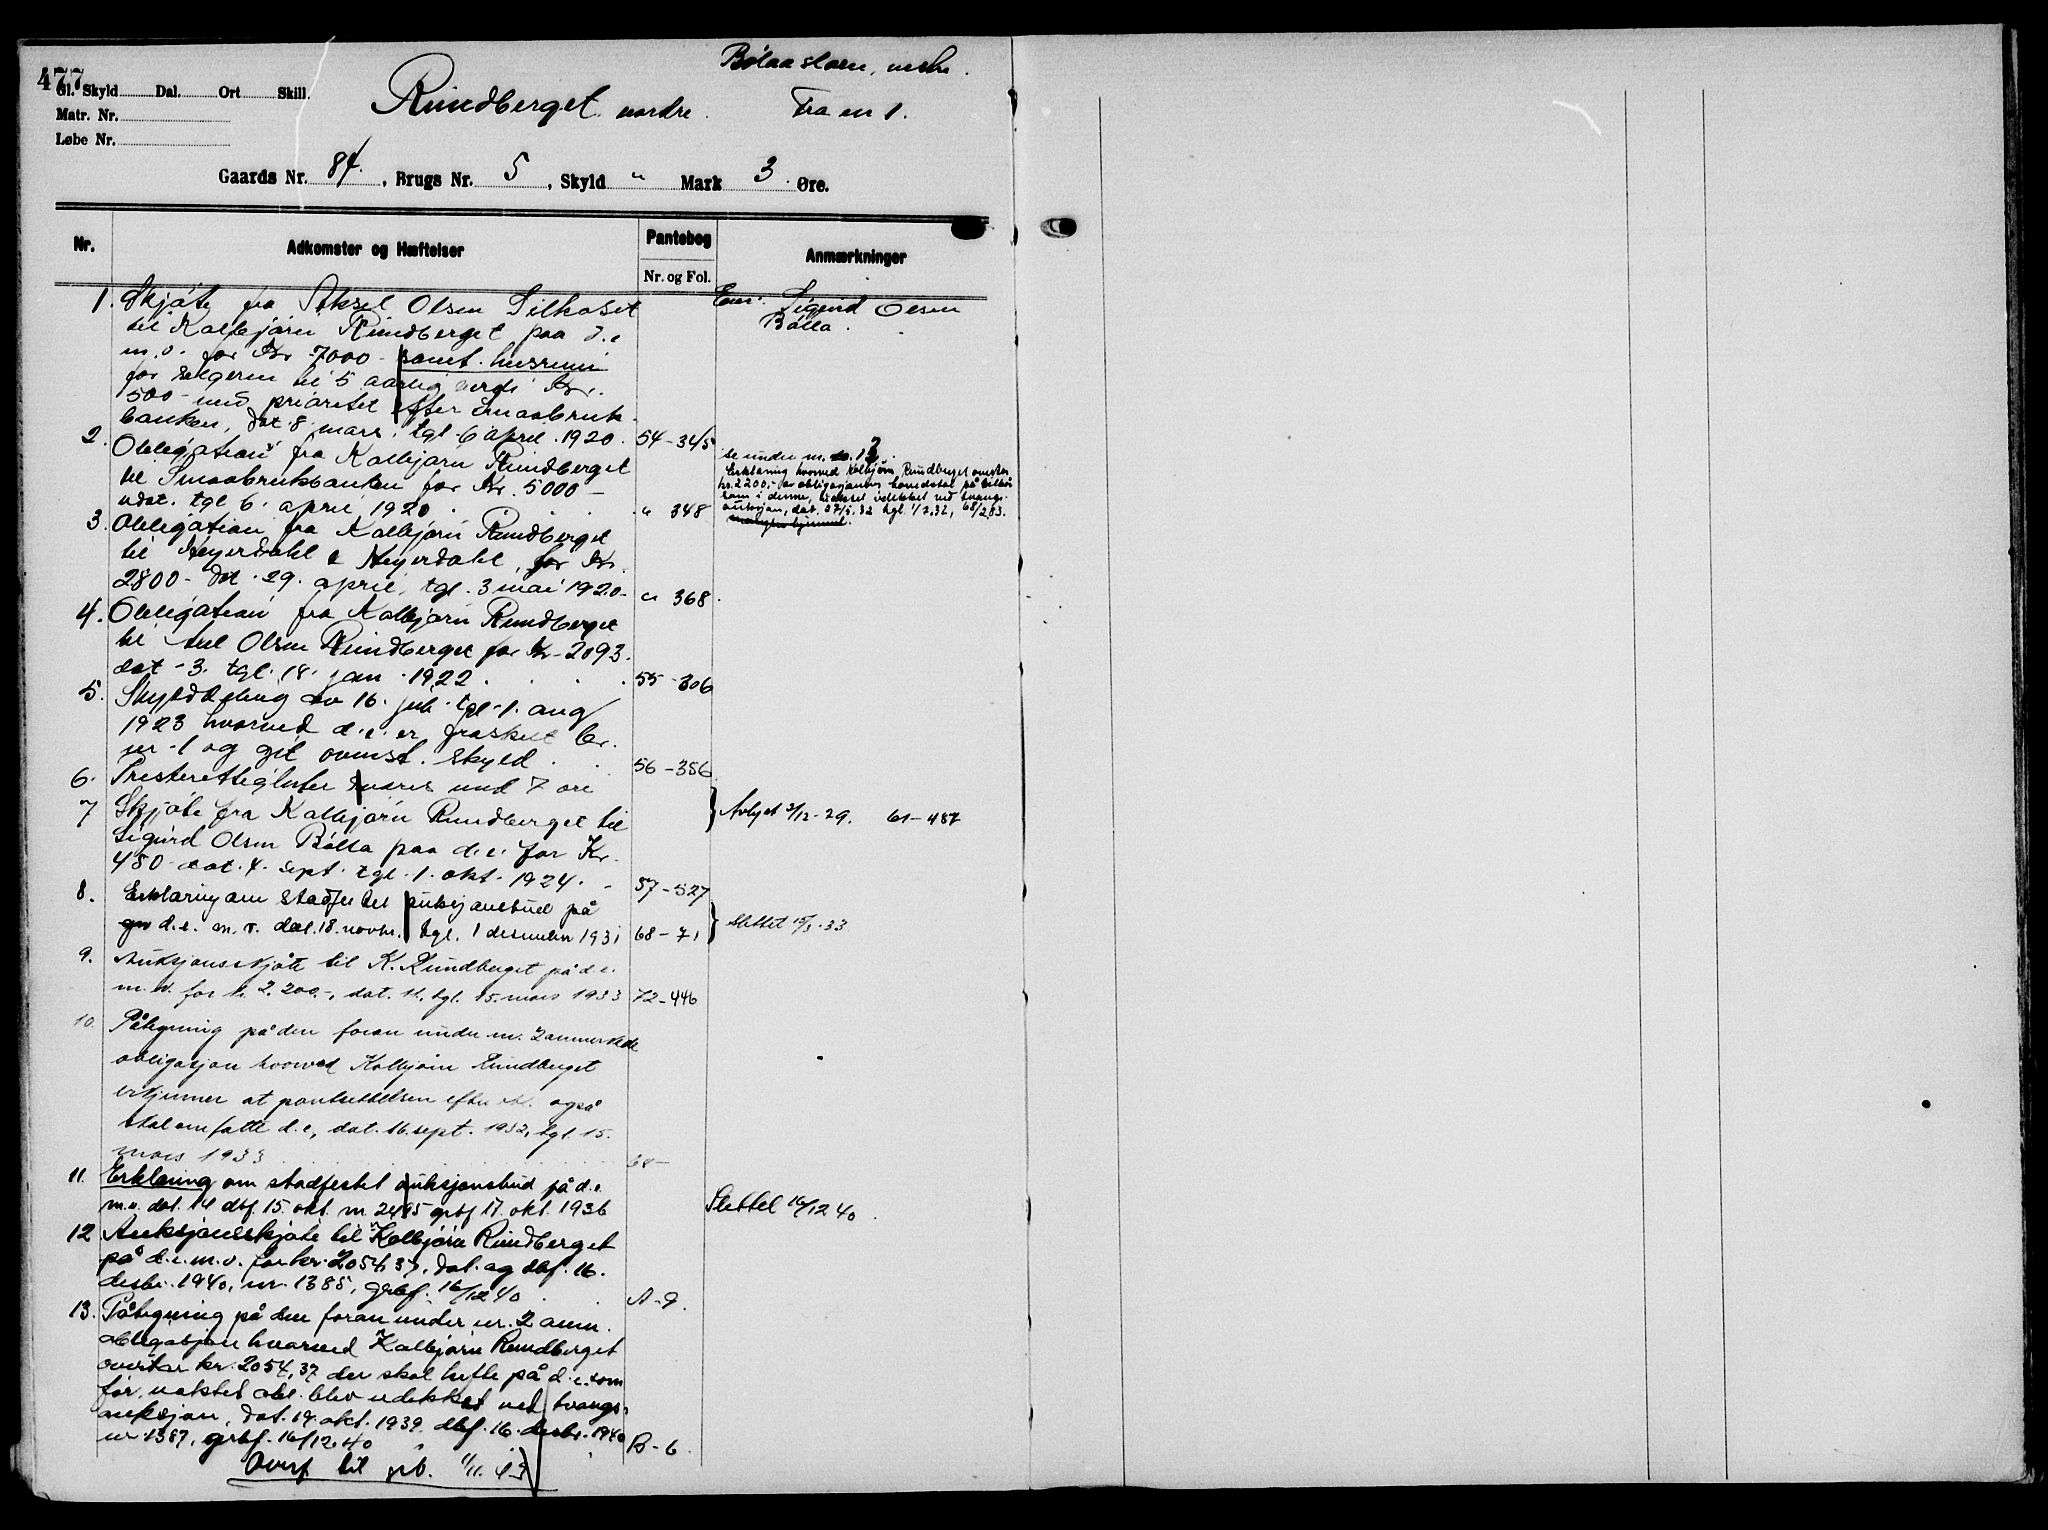 477
Gl. Skyld Dal. Ort Skill.
Matr. Nr.
Løbe Nr.
Rundberget nordre.
Fra nr 1.
Gaards Nr. 84. , Brugs Nr. 5 , Skyld " Mark 3 Øre.
Nr.
Adkomster og Hæftelser
Pantebog
Nr. og Fol.
Anmærkninger
1. Skjøte fra Aksel Olsen
til Kolbjørn Rundberget paa d.e
m.v. for Kr 7000 - samt husrum
for selgeren til 5 aarlig verdi Kr.
500 - med prioritet efter Smaabruk-
banken, dat. 8 mars, tgl. 6 april 1920. 54-345
Eier: Sigurd Olsen
Bølla.
2. Obligation fra Kolbjørn Rundberget
til Smaabrukbanken for Kr. 5000 -
udat. tgl 6. april 1920 " 348
se under nr. 13
Erklæring hvorved Kolbjørn Rundberget overtar
kr. 2200,- av obligasjonens hovedstol
som i denne, uaktet udekket ved tvangs-
auksjon, dat. 27/5.32 tgl. 1/2.32, 68/283.
3. Obligation fra Kolbjørn Rundberget
til Heyerdahl & Heyerdahl, for Kr.
2800 - dat. 29. april, tgl. 3 mai 1920 - " 368.
4. Obligation fra Kolbjørn Rundberget
til Axel Olsen Rundberget for Kr - 2093.
dat - 3. tgl. 18. jan. 1922. 55-306
5. Skylddeling av 16. juli tgl. 1. aug
1923 hvorved d.e. er fraskilt br.
nr. 1 og git ovenst. skyld. 56-356
6. Presterettigheter svares med 7 øre
7 Skjøte fra Kolbjørn Rundberget til
Sigurd Olsen Bølla paa d.e. for Kr.
450 - dat. 4. sept. tgl. 1. okt. 1924. 57-527
Avlyst 2/12-29. 61-487
8. Erklæring om stadfestet auksjonsbud på
d.e. m.v. dat. 18. novbr. tgl. 1 desember 1931 68-71
Slettet 15/3.33
9. Auksjonsskjøte til K. Rundberget på d.e.
m.v. for kr. 2.200.-, dat. 11. tgl. 15. mars 1933 72-446
10. Påtegning på den foran under nr. 2 anmerkede
obligasjon hvorved Kolbjørn Rundberget
erkjenner at pantsettelsen efter obl. også
skal omfatte d.e., dat. 16. sept. 1932, tgl. 15.
mars 1933 64-
11. Erklæring om stadfestet auksjonsbud på d.e.
m.v. dat. 14 dbf. 15. okt. nr 2485 grbf 17. okt. 1936
Slettet 16/12 40.
12 Auksjonsskjøte til Kolbjørn Rundberget
på d.e. m.v. for kr. 2054,37, dat. og dbf. 16.
desbr. 1940, nr. 1385, grbf. 16/12 40. A-9.
13. Påtegning på den foran under nr. 2 anm.
obligasjon hvorved Kolbjørn Rundberget
overtar kr. 2054,37 der skal hefte på d.e. som
før, uaktet obl. blev udekket ved tvangs-
auksjon, dat. 19. okt. 1939. dbf. 16. desbr. 1940
nr. 1387, grbf. 16/12.40 B-6.
Overf. til grb. 1/11.43